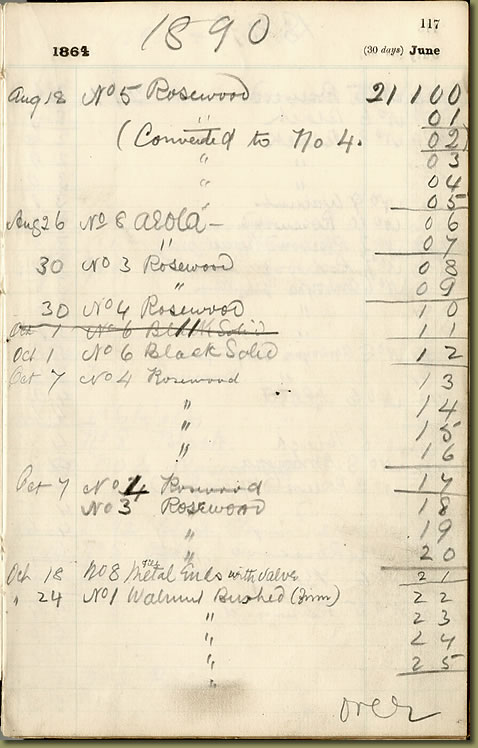 117
1890
1864 (30 days) June
Aug 18 No 5 Rosewood 21100
" 01
(Converted to No 4. 02
" 03
" 04
05
Aug 26 No 8 aeola - 06
" 07
30 No 3 Rosewood 08
" 09
30 No 4 Rosewood 10
Oct 1 No 6 Black Solid 11
Oct 1 No 6 Black Solid 12
Oct 7 No 4 Rosewood 13
" 14
" 15
" 16
Oct 7 No 4 Rosewood 17
No 3 Rosewood 18
" 19
" 20
Oct 18 No 8 Metal Ends with Valve 21
" 24 No 1 Walnut Bushed 22
" 23
" 24
" 25
"
over